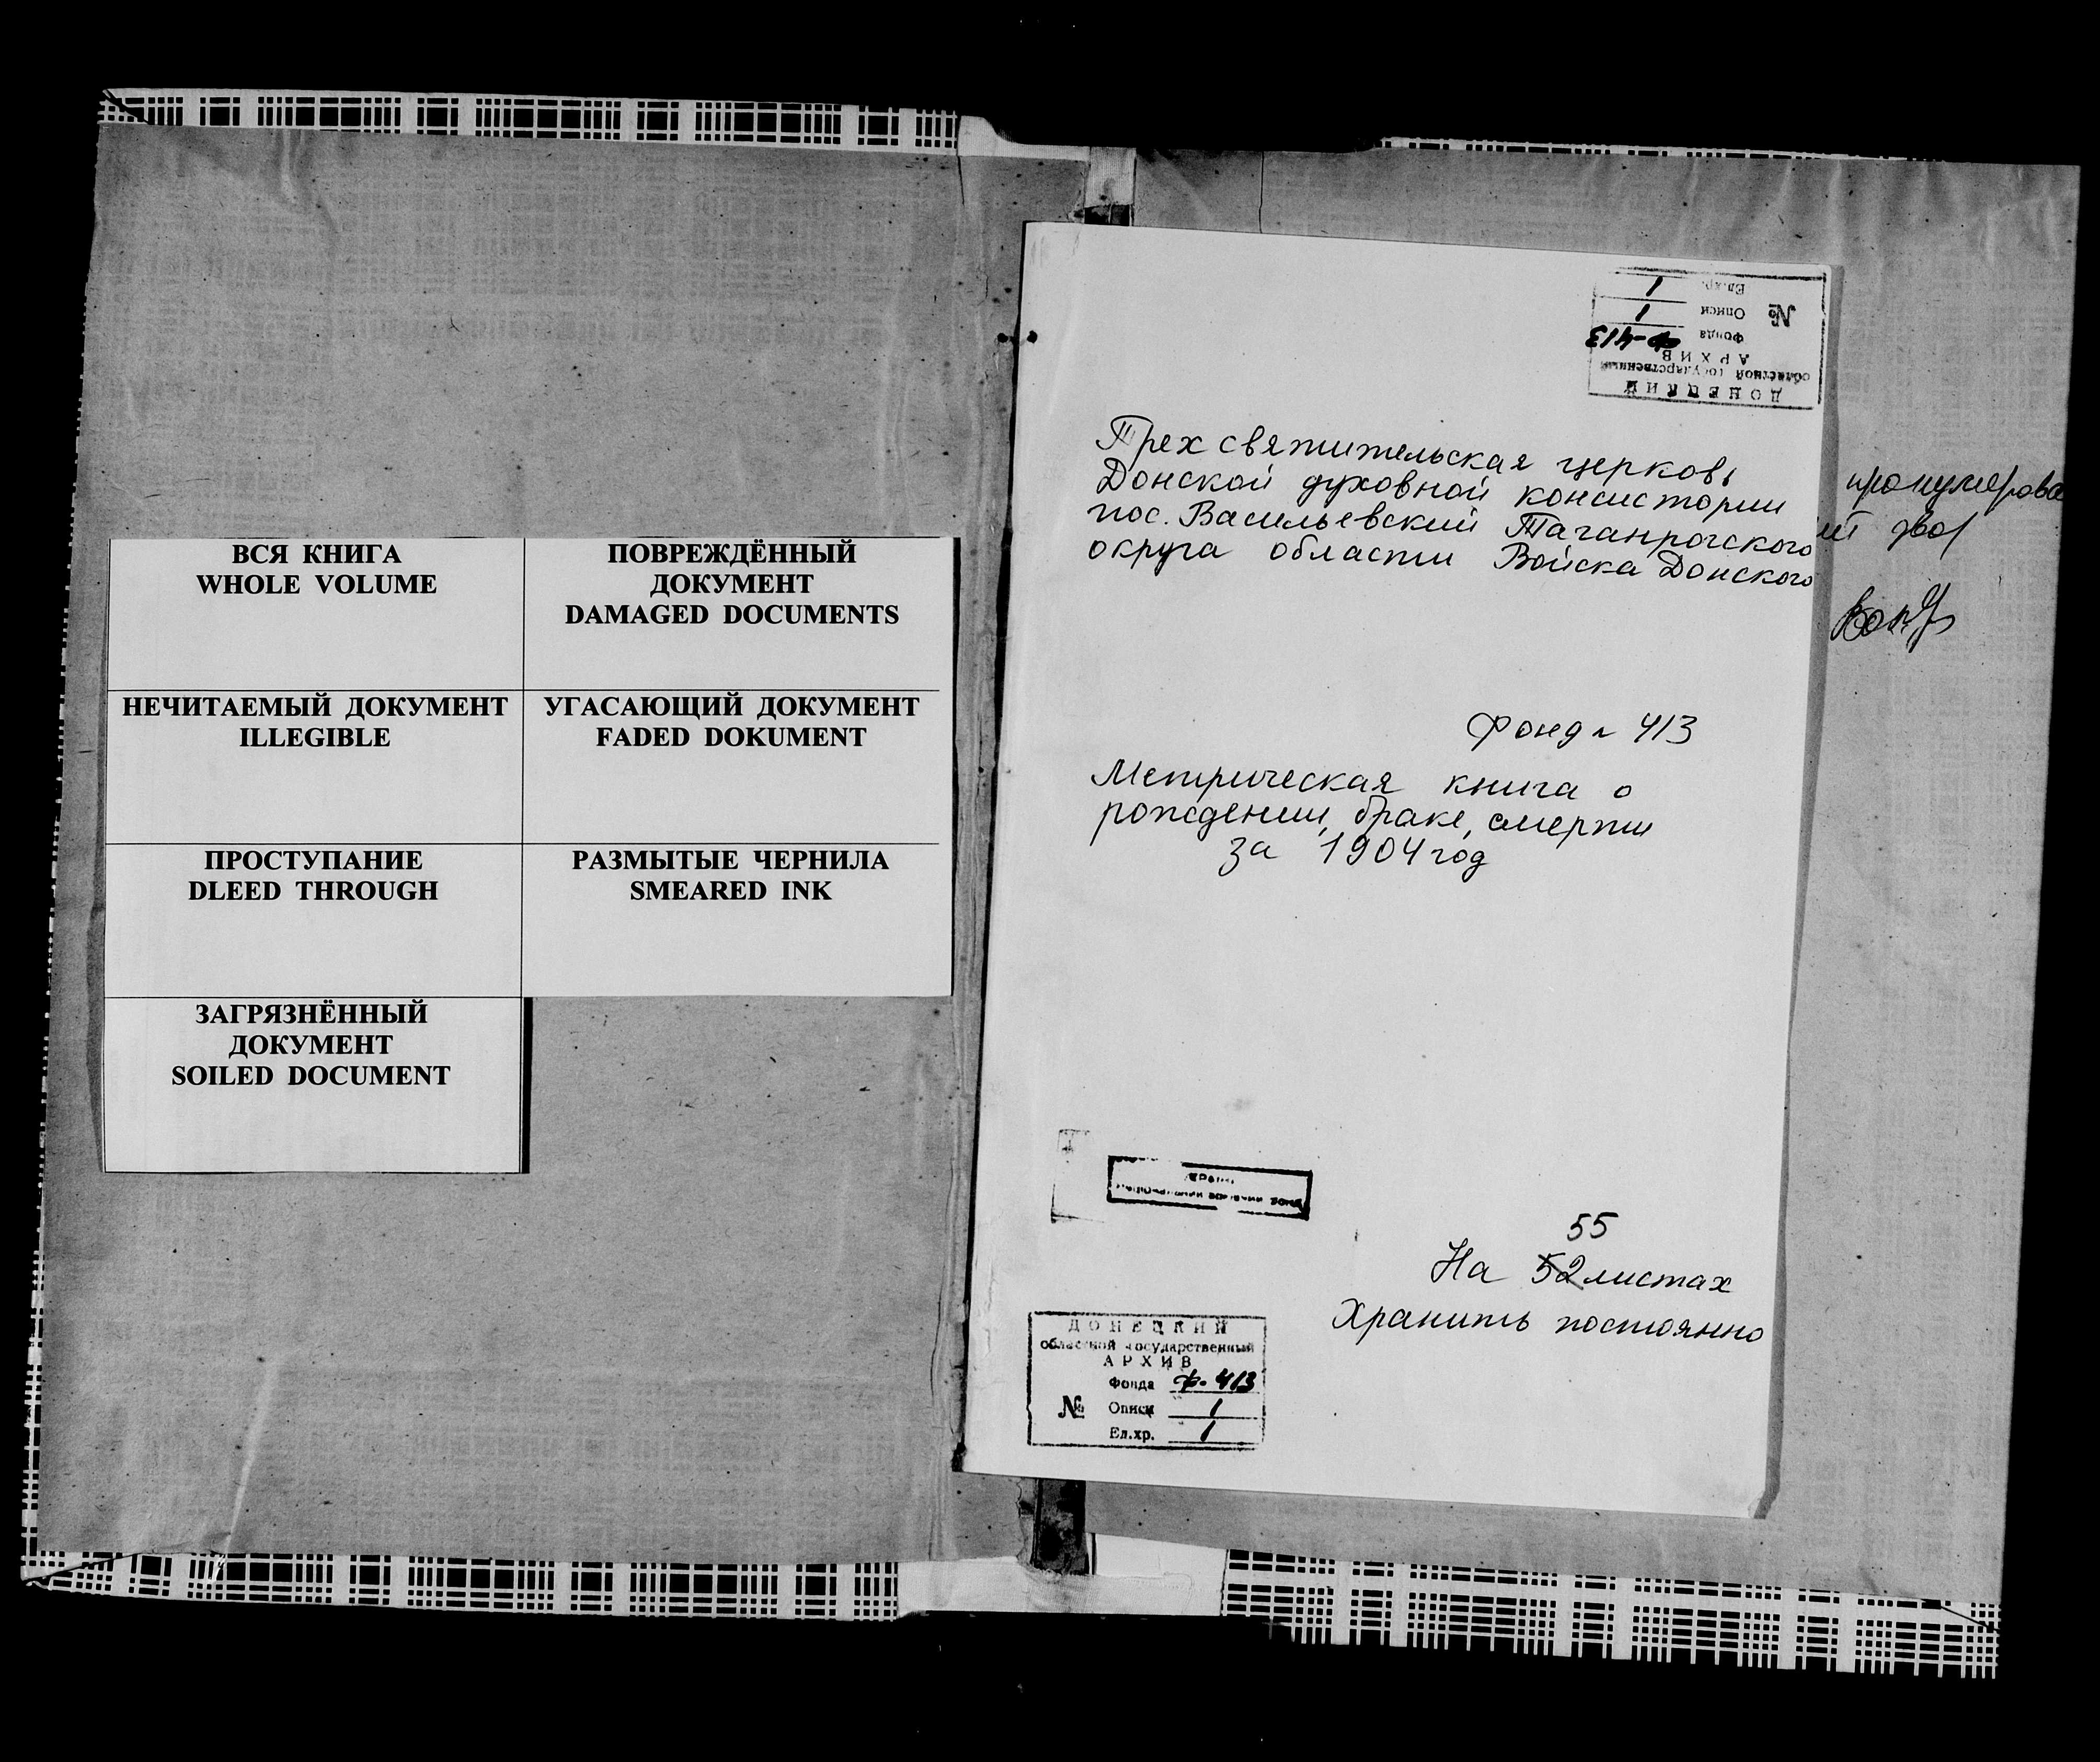 ВСЯ КНИГА
WHOLE VOLUME
ПОВРЕЖДЁННЫЙ
ДОКУМЕНТ
DAMAGED DOCUMENTS
НЕЧИТАЕМЫЙ ДОКУМЕНТ
ILLEGIBLE
УГАСАЮЩИЙ ДОКУМЕНТ
FADED DOKUMENT
ПРОСТУПАНИЕ
DLEED THROUGH
РАЗМЫТЫЕ ЧЕРНИЛА
SMEARED INK
ЗАГРЯЗНЁННЫЙ
ДОКУМЕНТ
SOILED DOCUMENT
ДОНЕЦКИЙ
областной государственный
АРХИВ
Фонда Ф-413
№ Описи 1
Ед.хр. 1
Трех святительская церковь
Донской духовной консистории
пос. Васильевский Таганрогского
округа области Войска Донского
пронумерова
Фонд 413
Метрическая книга о
рождении, браке, смерти
за 1904 год
55
На 52 листах
Хранить постоянно
ДОНЕЦКИЙ
областной государственный
АРХИВ
Фонда Ф-413
№ Описи 1
Ед.хр. 1